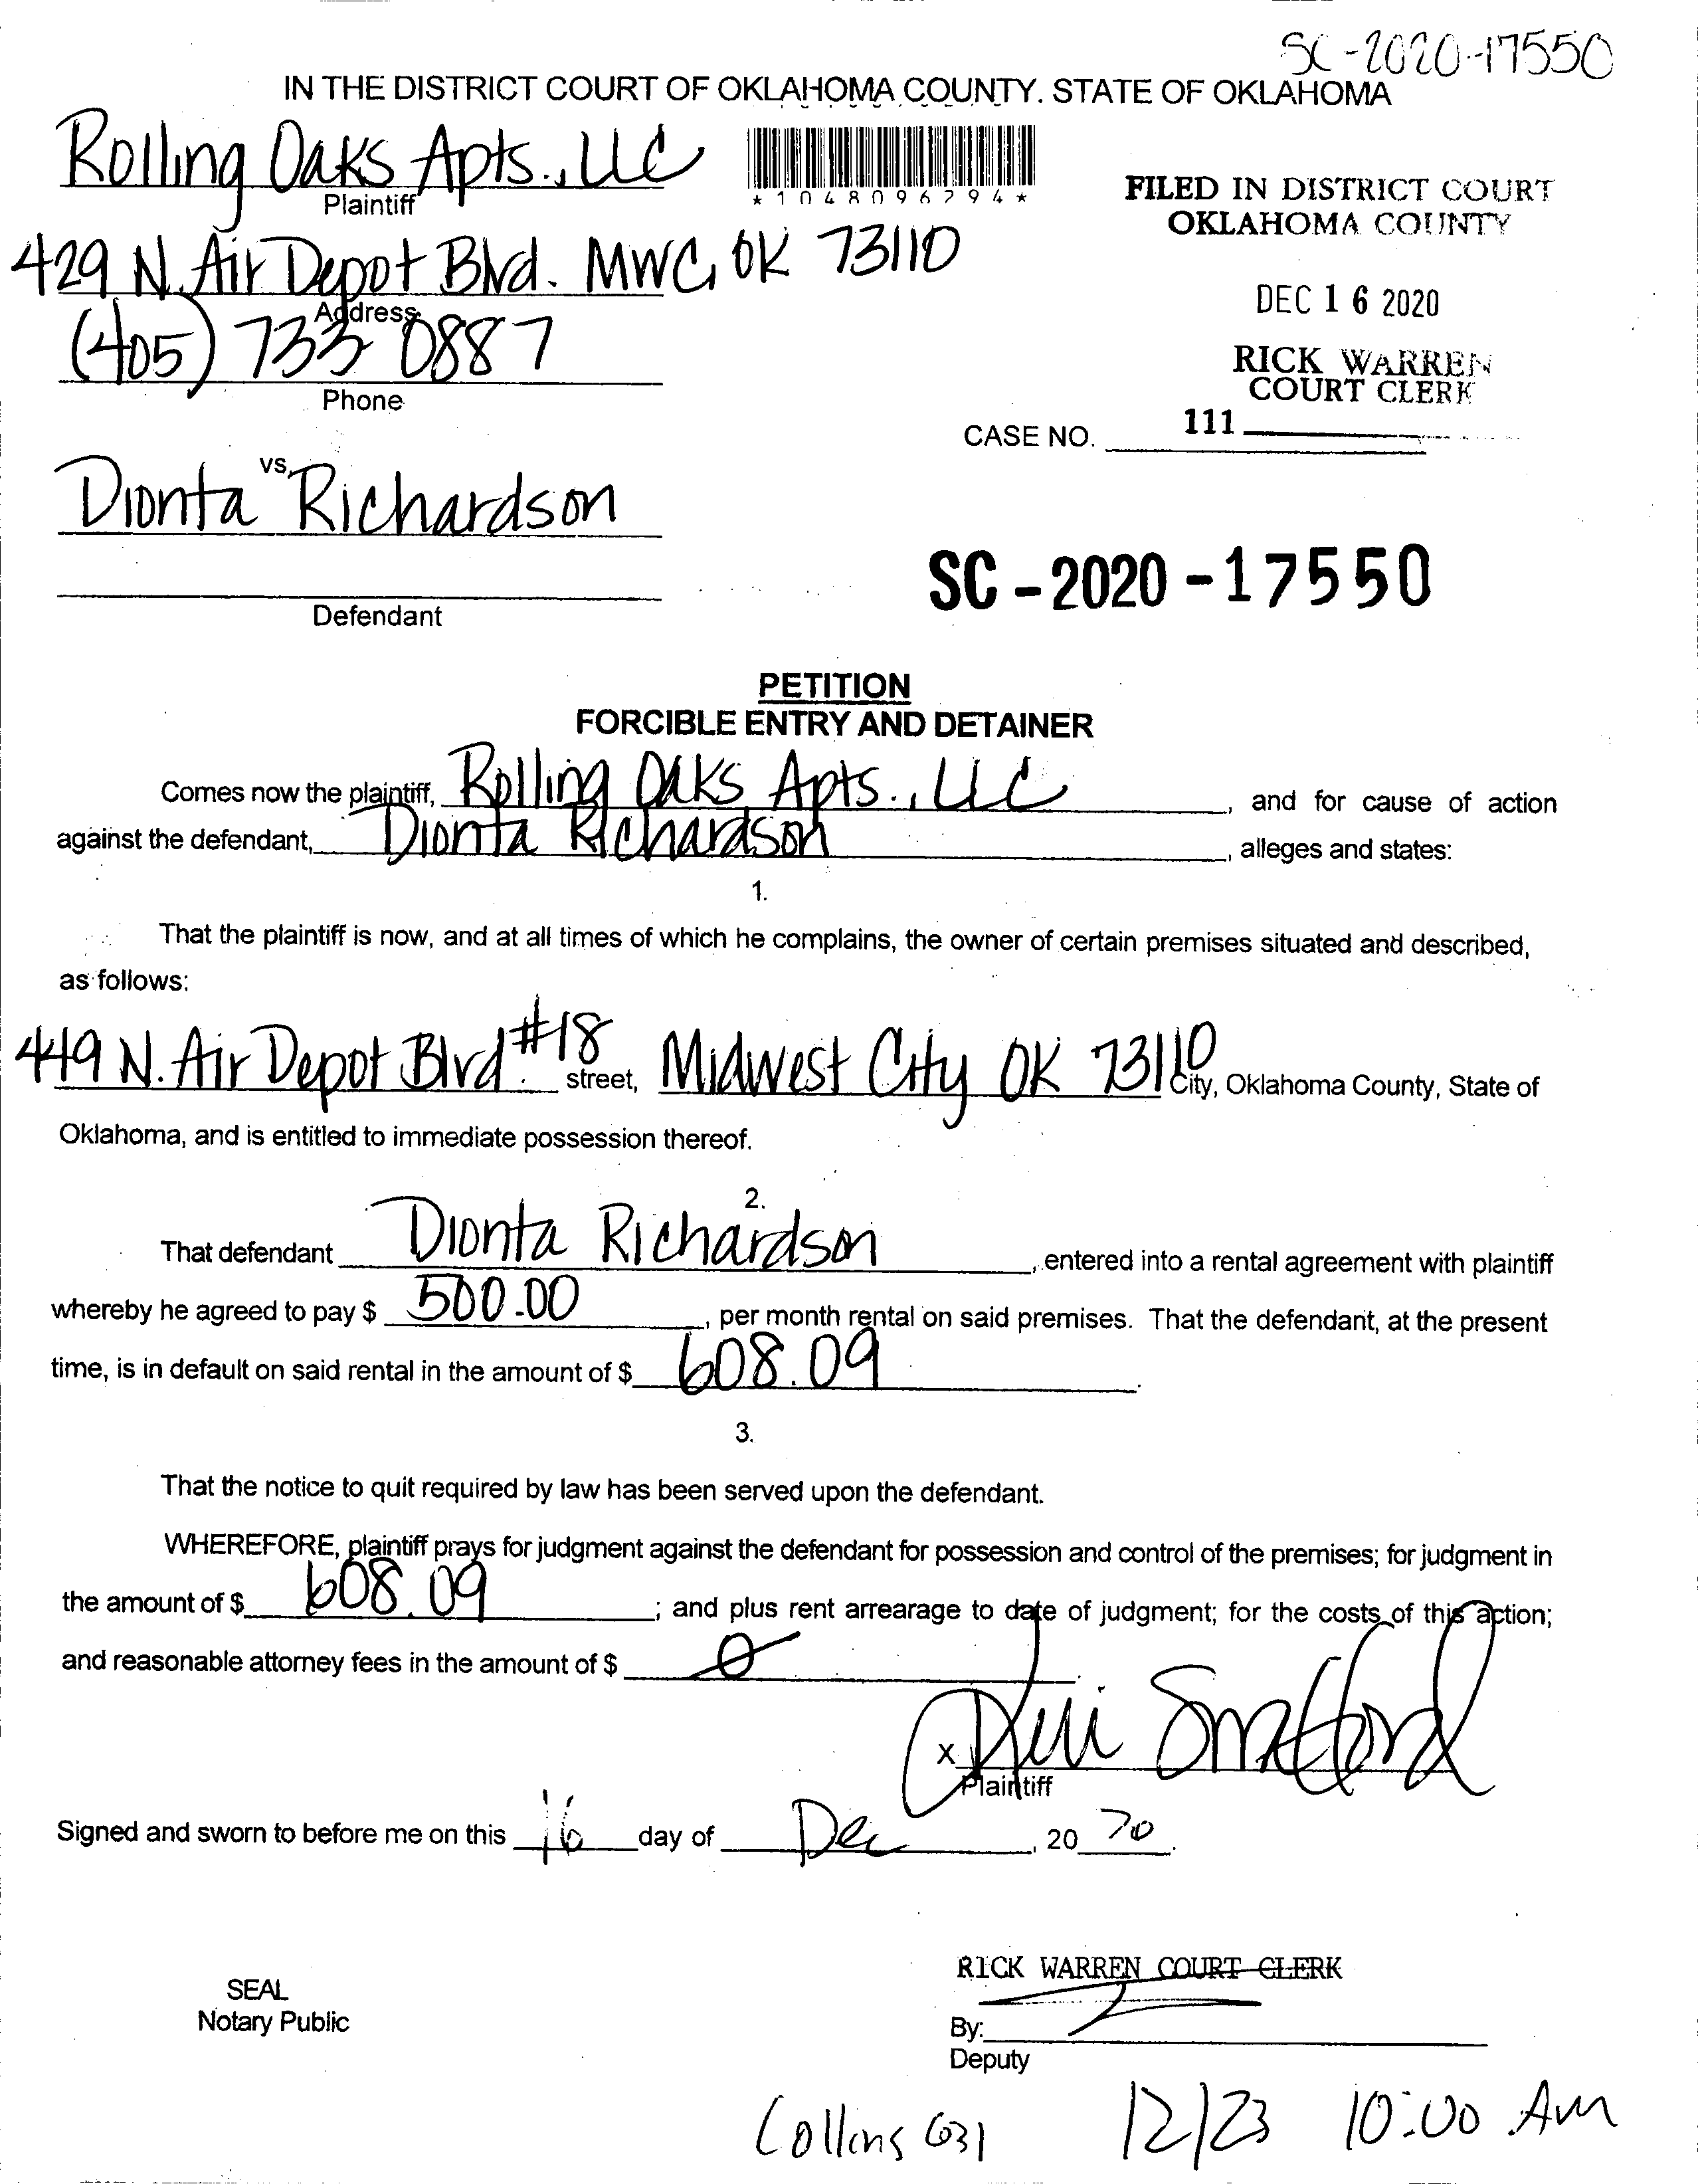 SC-2020-17550
IN THE DISTRICT COURT OF OKLAHOMA COUNTY. STATE OF OKLAHOMA
Rolling Oaks Apts., LLC
Plaintiff
*1048096294*
FILED IN DISTRICT COURT
OKLAHOMA COUNTY
429 N. Air Depot Blvd. MWC, OK 73110
Address
DEC 16 2020
(405) 733 0887
Phone
RICK WARREN
COURT CLERK
CASE NO. 111
vs.
Dionta Richardson
Defendant
SC-2020-17550
PETITION
FORCIBLE ENTRY AND DETAINER
Comes now the plaintiff, Rolling Oaks Apts., LLC, and for cause of action
against the defendant, Dionta Richardson, alleges and states:
1.
That the plaintiff is now, and at all times of which he complains, the owner of certain premises situated and described,
as follows:
449 N. Air Depot Blvd. #18 street, Midwest City OK 73110 City, Oklahoma County, State of
Oklahoma, and is entitled to immediate possession thereof.
2.
That defendant Dionta Richardson, entered into a rental agreement with plaintiff
whereby he agreed to pay $ 500.00, per month rental on said premises. That the defendant, at the present
time, is in default on said rental in the amount of $ 608.09.
3.
That the notice to quit required by law has been served upon the defendant.
WHEREFORE, plaintiff prays for judgment against the defendant for possession and control of the premises; for judgment in
the amount of $ 608.09; and plus rent arrearage to date of judgment; for the costs of this action;
and reasonable attorney fees in the amount of $ 0.
X
Plaintiff
Signed and sworn to before me on this 16 day of Dec, 20 20.
RICK WARREN COURT CLERK
SEAL
Notary Public
By:
Deputy
Collins 631 12/23 10:00 AM